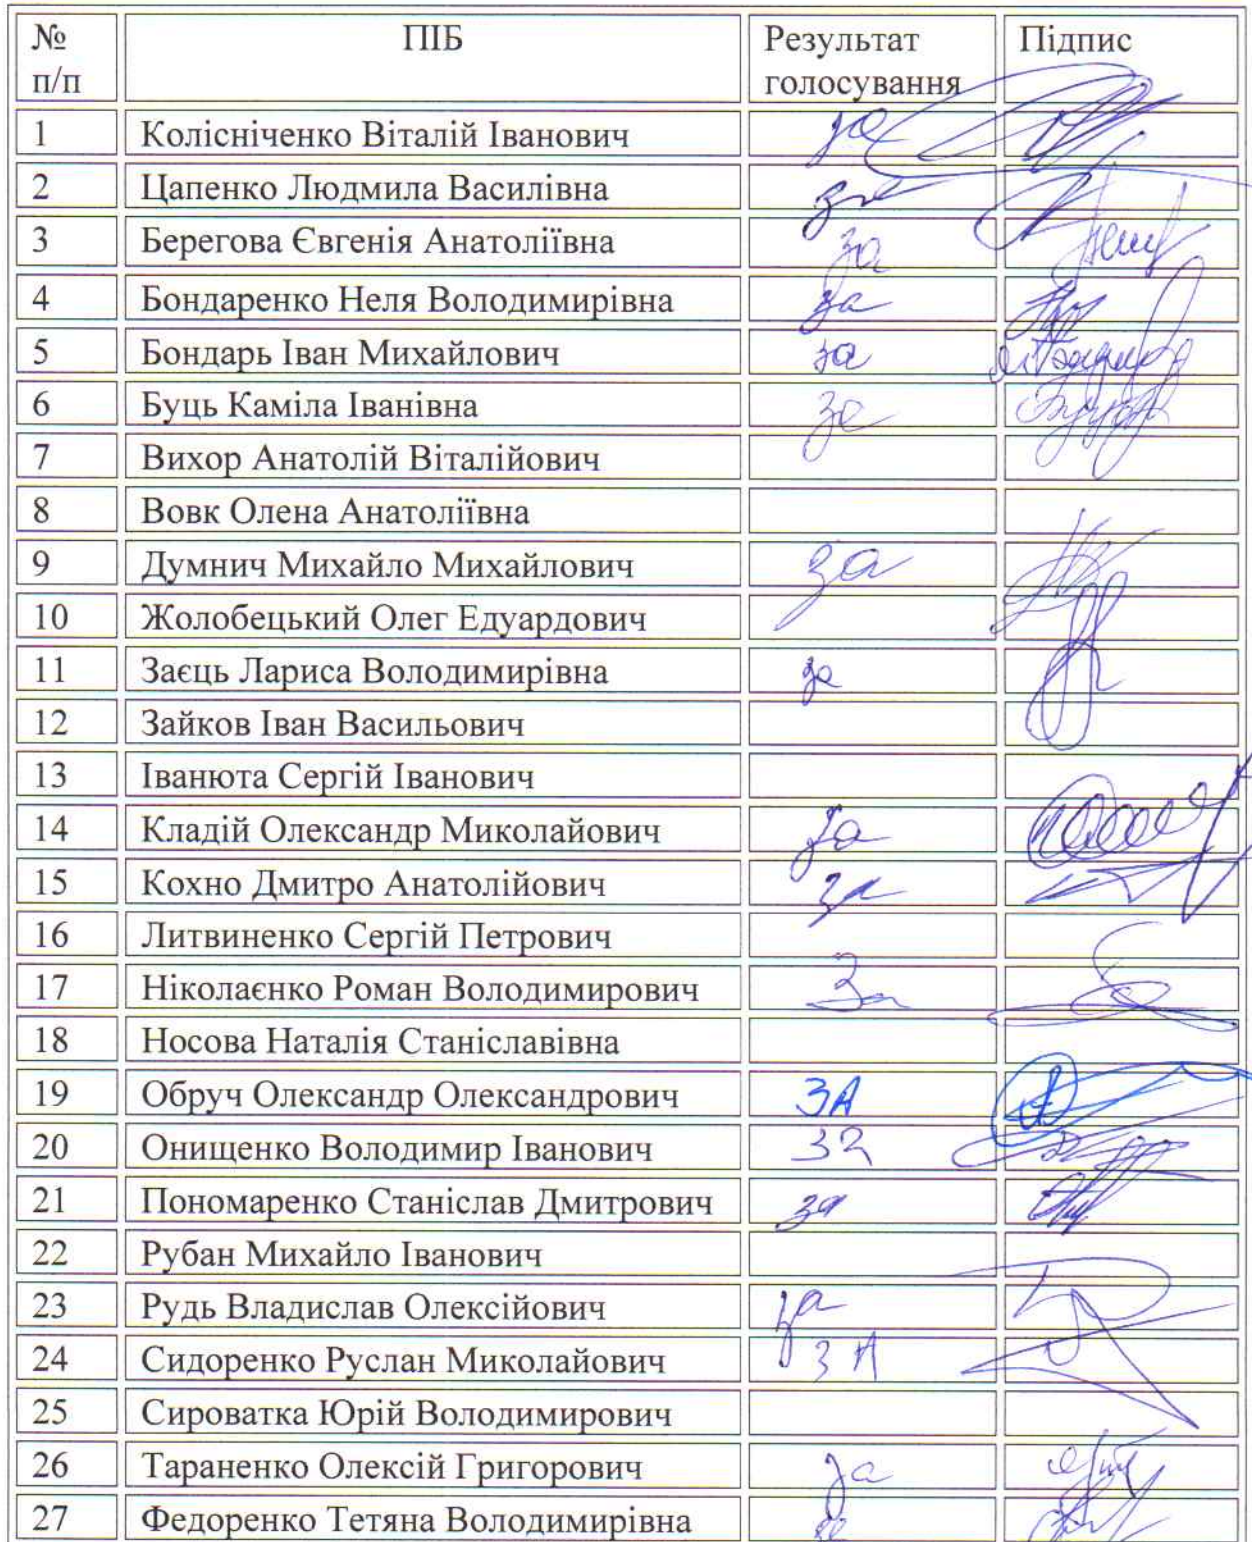 № п/п ПІБ Результат голосування Підпис
1 Колісніченко Віталій Іванович за
2 Цапенко Людмила Василівна за
3 Берегова Євгенія Анатоліївна за
4 Бондаренко Неля Володимирівна за
5 Бондарь Іван Михайлович за
6 Буць Каміла Іванівна за
7 Вихор Анатолій Віталійович
8 Вовк Олена Анатоліївна
9 Думнич Михайло Михайлович за
10 Жолобецький Олег Едуардович
11 Заєць Лариса Володимирівна за
12 Зайков Іван Васильович
13 Іванюта Сергій Іванович
14 Кладій Олександр Миколайович за
15 Кохно Дмитро Анатолійович за
16 Литвиненко Сергій Петрович
17 Ніколаєнко Роман Володимирович За
18 Носова Наталія Станіславівна
19 Обруч Олександр Олександрович ЗА
20 Онищенко Володимир Іванович за
21 Пономаренко Станіслав Дмитрович за
22 Рубан Михайло Іванович
23 Рудь Владислав Олексійович за
24 Сидоренко Руслан Миколайович ЗА
25 Сироватка Юрій Володимирович
26 Тараненко Олексій Григорович за
27 Федоренко Тетяна Володимирівна за